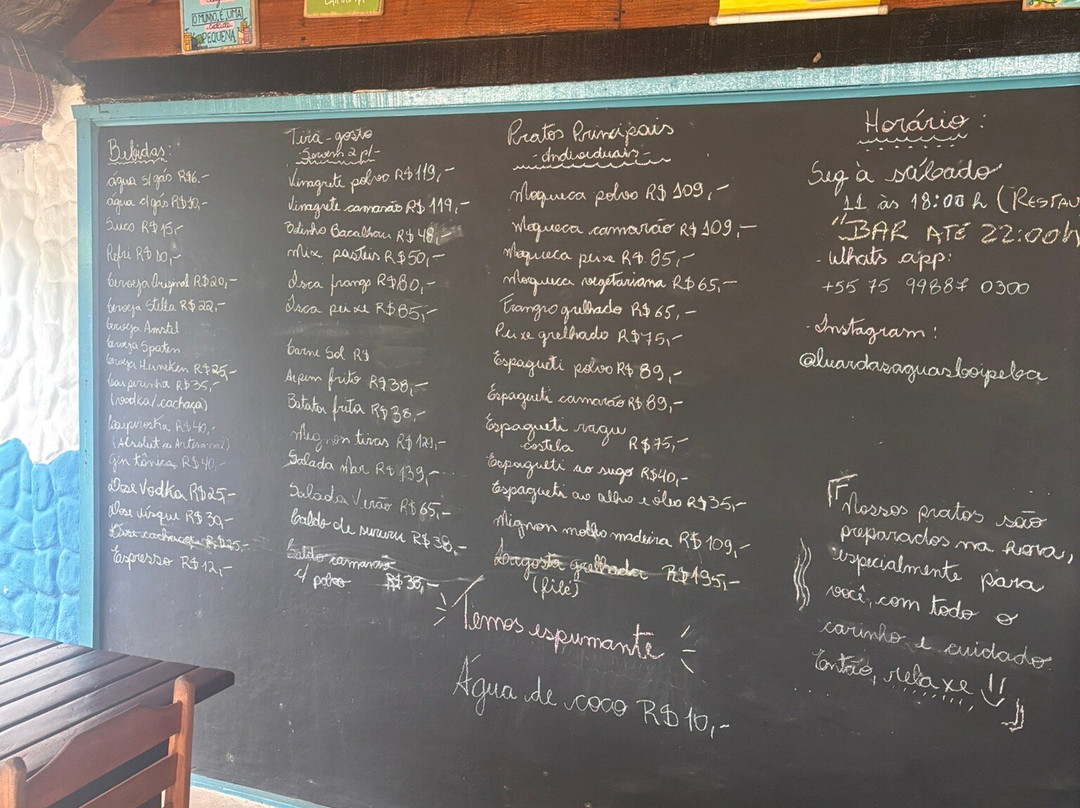 O MUNDO É UMA
PEQUENA
Bebidas:
água s/gás R$6,-
água c/gás R$10,-
Suco R$15,-
Refri R$10,-
Cerveja Original R$20,-
Cerveja Stella R$22,-
Cerveja Amstel
Cerveja Spaten
Cerveja Heineken R$25,-
Caipirinha R$35,-
(vodka/cachaça)
Caipiroska R$40,-
(Absolut ou Artesanal)
Gin tônica R$40,-
Dose Vodka R$25,-
Dose uísque R$30,-
Dose cachaça R$25,-
Espresso R$12,-
Tira-gosto
Servem 2 p/-
Vinagrete polvo R$119,-
Vinagrete camarão R$119,-
Bolinho Bacalhau R$48,-
Mix pasteis R$50,-
Isca frango R$80,-
Isca peixe R$85,-
Carne Sol R$
Aipim frito R$38,-
Batata frita R$38,-
Mignon tiras R$121,-
Salada Mar R$139,-
Salada Verão R$65,-
Caldo de sururu R$38,-
Caldo camarão
c/ polvo R$38,-
Pratos Principais
- Individuais -
Moqueca polvo R$109,-
Moqueca camarão R$109,-
Moqueca peixe R$85,-
Moqueca vegetariana R$65,-
Frango grelhado R$65,-
Peixe grelhado R$75,-
Espagueti polvo R$89,-
Espagueti camarão R$89,-
Espagueti ragu
costela R$75,-
Espagueti ao sugo R$40,-
Espagueti ao alho e óleo R$35,-
Mignon molho madeira R$109,-
Lagosta grelhada R$195,-
(filé)
Temos espumante
Água de coco R$10,-
Horário:
Seg à sábado
11 às 18:00h (RESTAU
"BAR ATÉ 22:00h
- Whats app:
+55 75 99887 0300
- Instagram:
@luardasaguasboipeba
Nossos pratos são
preparados na hora,
especialmente para
você, com todo o
carinho e cuidado.
Então, relaxe !!